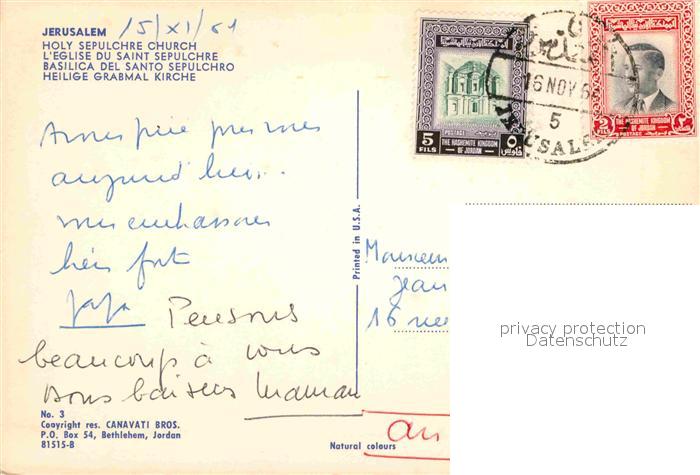 JERUSALEM 15/XI/61
HOLY SEPULCHRE CHURCH
L'EGLISE DU SAINT SEPULCHRE
BASILICA DEL SANTO SEPULCHRO
HEILIGE GRABMAL KIRCHE
aujourd'hui..
bien fort
Papa Pensons
beaucoup à vous
bons baisers Maman
No. 3
Copyright res. CANAVATI BROS.
P.O. Box 54, Bethlehem, Jordan
81515-B
Natural colours
Printed in U.S.A.
5
FILS
THE HASHEMITE KINGDOM
OF JORDAN
POSTAGE
٥
فلوس
16 NOV
5
JERUSALEM
2
FILS
THE HASHEMITE KINGDOM
OF JORDAN
POSTAGE
Monsieur
Jean
16 rue
au
privacy protection
Datenschutz